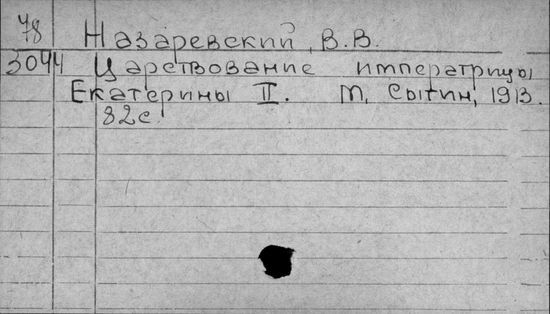 78 Назаревский, В.В.
3044 Царствование императрицы
Екатерины II. М, Сытин, 1913.
82с.